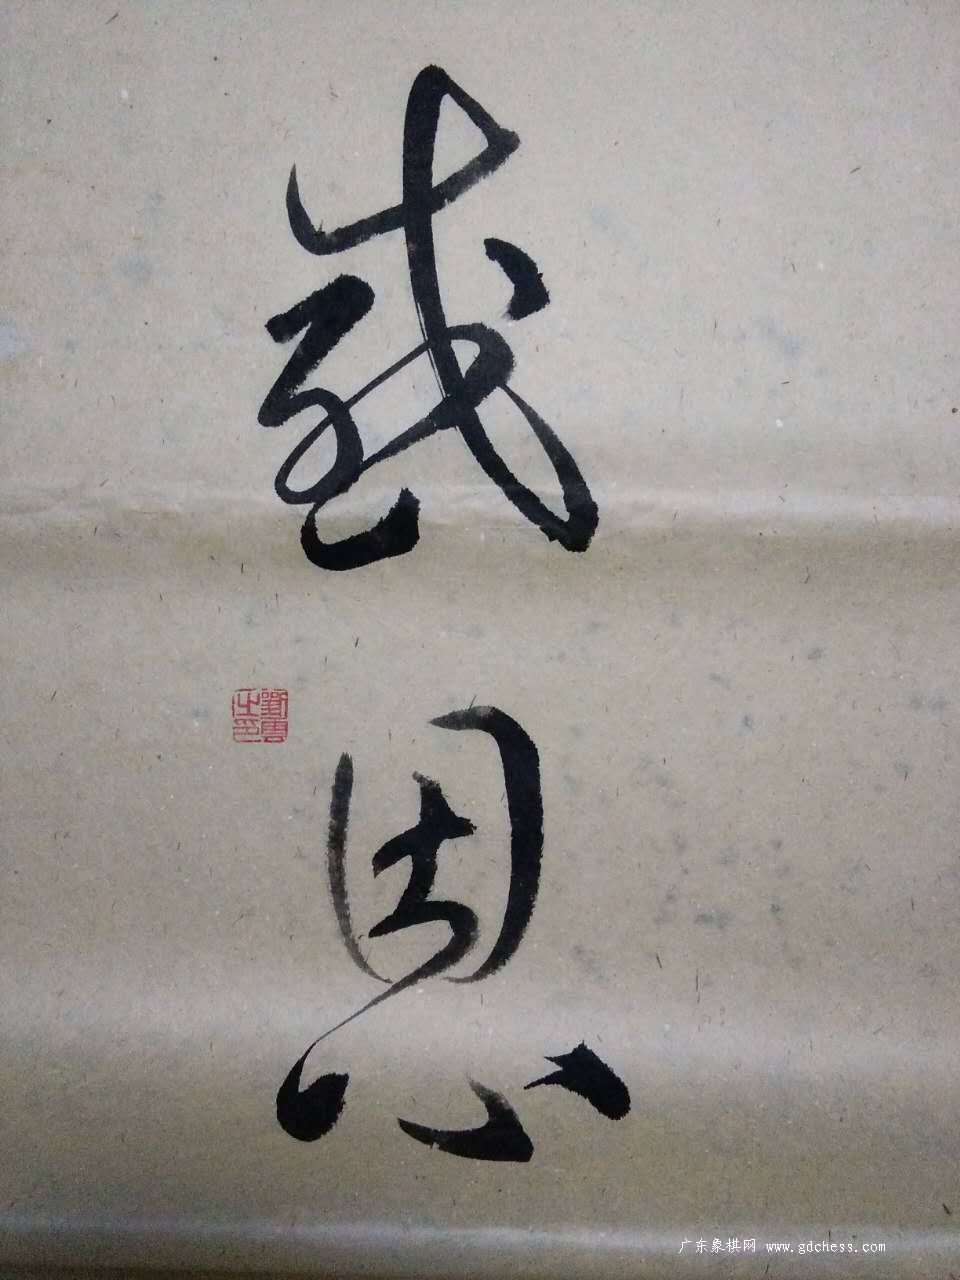 感恩
广东象棋网 www.gdchess.com